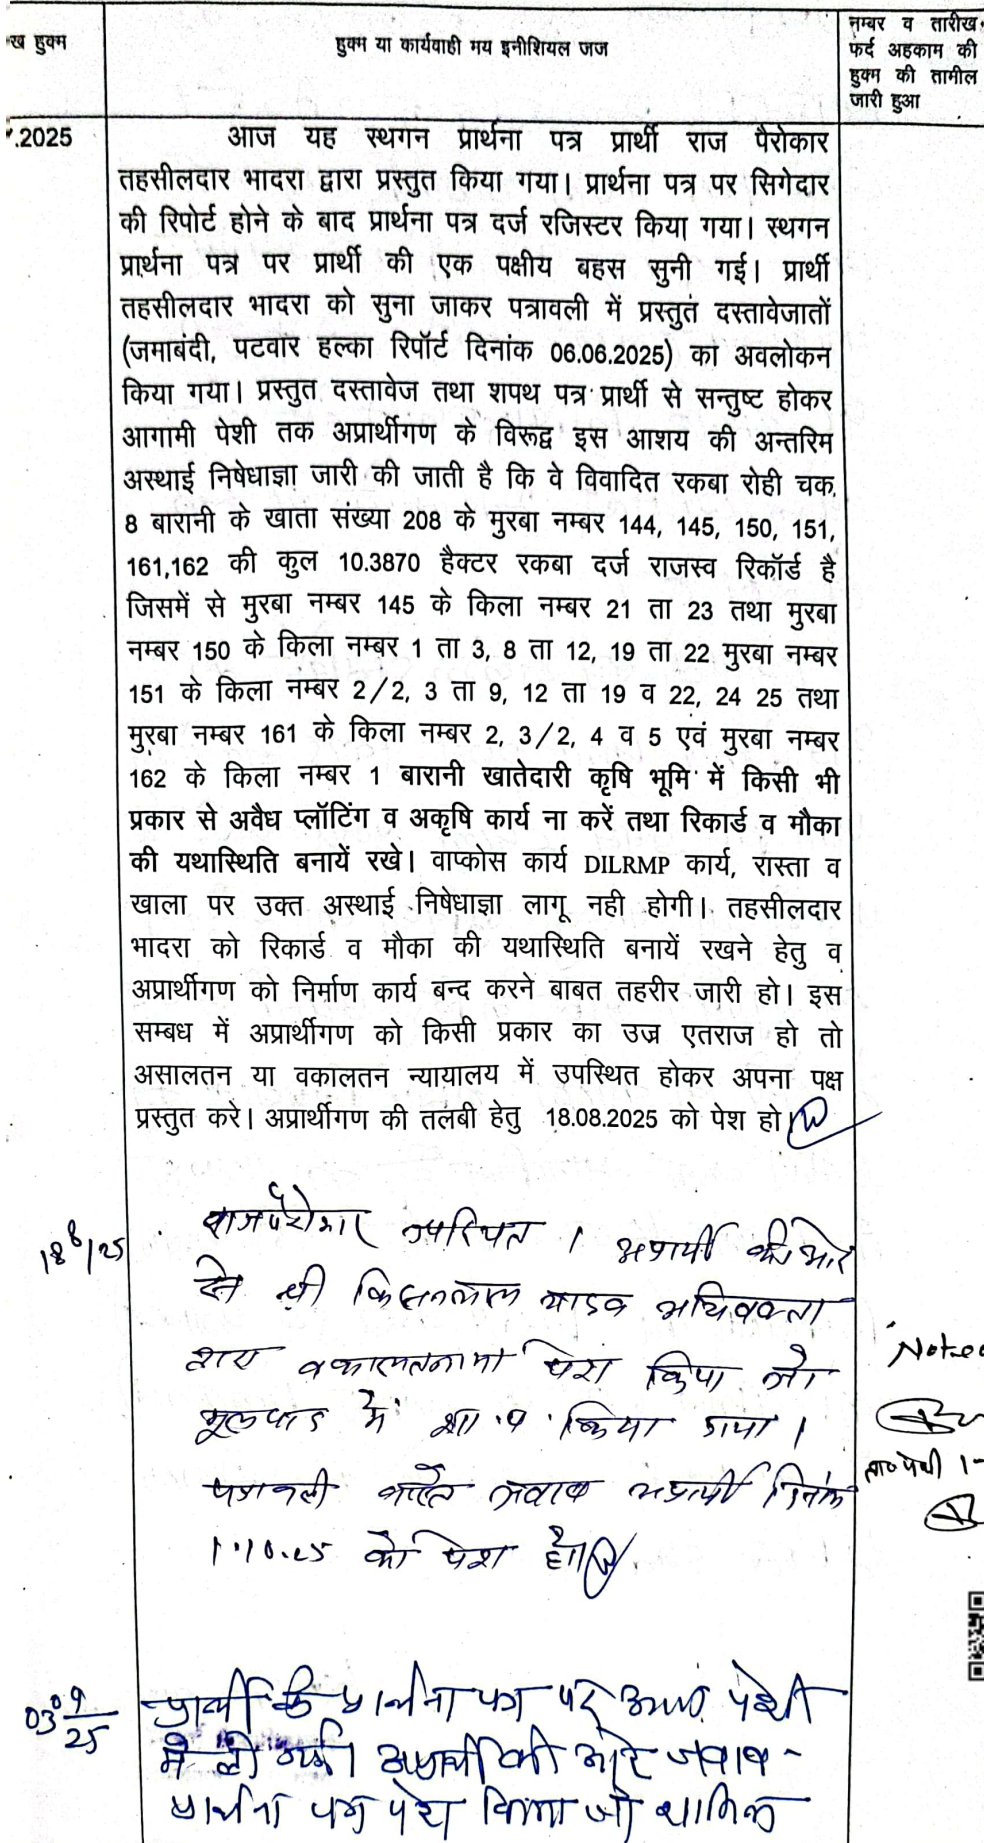 ख हुक्म
हुक्म या कार्यवाही मय इनीशियल जज
नम्बर व तारीख
फर्द अहकाम की
हुक्म की तामील
जारी हुआ
.2025
आज यह स्थगन प्रार्थना पत्र प्रार्थी राज पैरोकार
तहसीलदार भादरा द्वारा प्रस्तुत किया गया। प्रार्थना पत्र पर सिगेदार
की रिपोर्ट होने के बाद प्रार्थना पत्र दर्ज रजिस्टर किया गया। स्थगन
प्रार्थना पत्र पर प्रार्थी की एक पक्षीय बहस सुनी गई। प्रार्थी
तहसीलदार भादरा को सुना जाकर पत्रावली में प्रस्तुत दस्तावेजातों
(जमाबंदी, पटवार हल्का रिपोर्ट दिनांक 06.06.2025) का अवलोकन
किया गया। प्रस्तुत दस्तावेज तथा शपथ पत्र प्रार्थी से सन्तुष्ट होकर
आगामी पेशी तक अप्रार्थीगण के विरूद्व इस आशय की अन्तरिम
अस्थाई निषेधाज्ञा जारी की जाती है कि वे विवादित रकबा रोही चक
8 बारानी के खाता संख्या 208 के मुरबा नम्बर 144, 145, 150, 151,
161,162 की कुल 10.3870 हैक्टर रकबा दर्ज राजस्व रिकॉर्ड है
जिसमें से मुरबा नम्बर 145 के किला नम्बर 21 ता 23 तथा मुरबा
नम्बर 150 के किला नम्बर 1 ता 3, 8 ता 12, 19 ता 22 मुरबा नम्बर
151 के किला नम्बर 2/2, 3 ता 9, 12 ता 19 व 22, 24 25 तथा
मुरबा नम्बर 161 के किला नम्बर 2, 3/2, 4 व 5 एवं मुरबा नम्बर
162 के किला नम्बर 1 बारानी खातेदारी कृषि भूमि में किसी भी
प्रकार से अवैध प्लॉटिंग व अकृषि कार्य ना करें तथा रिकार्ड व मौका
की यथास्थिति बनायें रखे। वाप्कोस कार्य DILRMP कार्य, रास्ता व
खाला पर उक्त अस्थाई निषेधाज्ञा लागू नही होगी। तहसीलदार
भादरा को रिकार्ड व मौका की यथास्थिति बनायें रखने हेतु व
अप्रार्थीगण को निर्माण कार्य बन्द करने बाबत तहरीर जारी हो। इस
सम्बध में अप्रार्थीगण को किसी प्रकार का उज्र एतराज हो तो
असालतन या वकालतन न्यायालय में उपस्थित होकर अपना पक्ष
प्रस्तुत करे। अप्रार्थीगण की तलबी हेतु 18.08.2025 को पेश हो।
18 8/25
राजपैरोकार उपस्थित। अप्रार्थी की ओर
से श्री किसनलाल यादव अधिवक्ता
द्वारा वकालतनामा पेश किया जो
मूलवाद में शा. प. किया गया।
पत्रावली वास्ते जवाब अप्रार्थी दिनांक
1.10.25 को पेश हो।
Noted
ता० पेशी 1-
03 9/25
प्रार्थी के प्रार्थना पत्र पर आज पेशी
में ली गई। अप्रार्थी की ओर जवाब-
प्रार्थना पत्र पेश किया जो शामिल